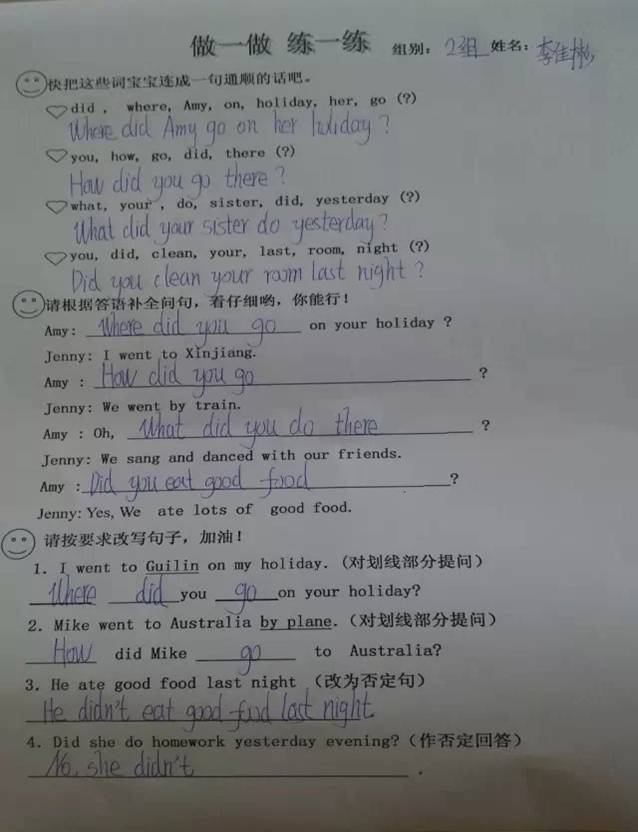 做一做 练一练 组别： 2组 姓名： 李佳
快把这些词宝宝连成一句通顺的话吧。
did , where, Amy, on, holiday, her, go (?)
Where did Amy go on her holiday ?
you, how, go, did, there (?)
How did you go there ?
what, your , do, sister, did, yesterday (?)
What did your sister do yesterday?
you, did, clean, your, last, room, night (?)
Did you clean your room last night ?
请根据答语补全问句，看仔细哟，你能行！
Amy: Where did you go on your holiday ?
Jenny: I went to Xinjiang.
Amy : How did you go ?
Jenny: We went by train.
Amy : Oh, What did you do there ?
Jenny: We sang and danced with our friends.
Amy : Did you eat good food ?
Jenny: Yes, We ate lots of good food.
请按要求改写句子，加油！
1. I went to Guilin on my holiday. (对划线部分提问)
Where did you go on your holiday?
2. Mike went to Australia by plane. (对划线部分提问)
How did Mike go to Australia?
3. He ate good food last night (改为否定句)
He didn't eat good food last night
4. Did she do homework yesterday evening? (作否定回答)
No, she didn't .